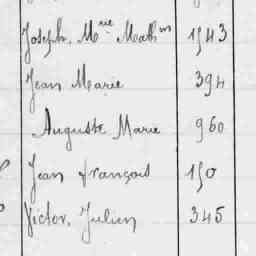 Joseph, Mrie Mathin 1543
Jean Marie 394
Auguste Marie 960
Jean françois 150
Victor, Julien 345